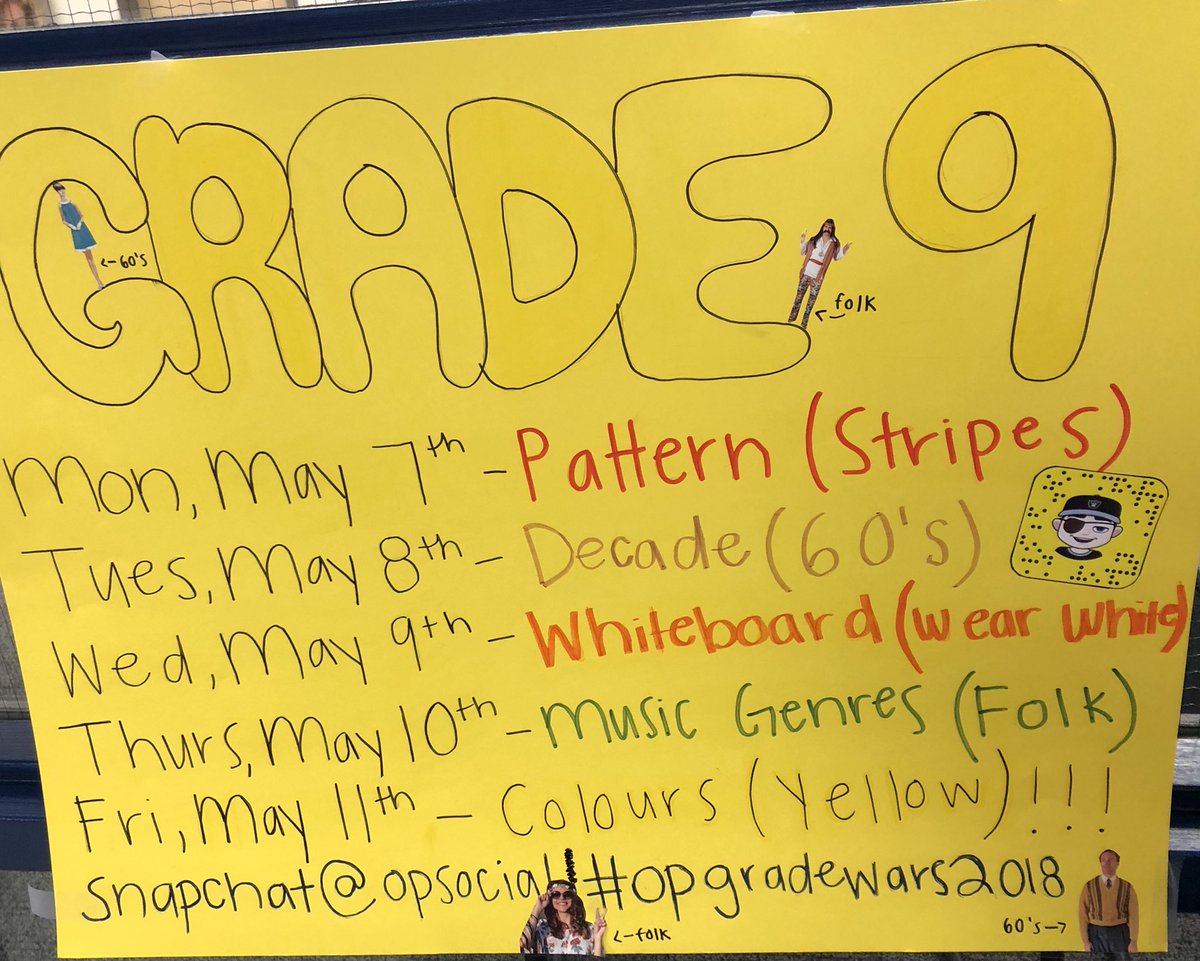 GRADE 9
<-60's
folk
Mon, May 7th - Pattern (Stripes)
Tues, May 8th - Decade (60's)
Wed, May 9th - Whiteboard (wear white)
Thurs, May 10th - Music Genres (Folk)
Fri, May 11th - Colours (Yellow)!!!
snapchat@opsocial #opgradewars2018
<-folk
60's->